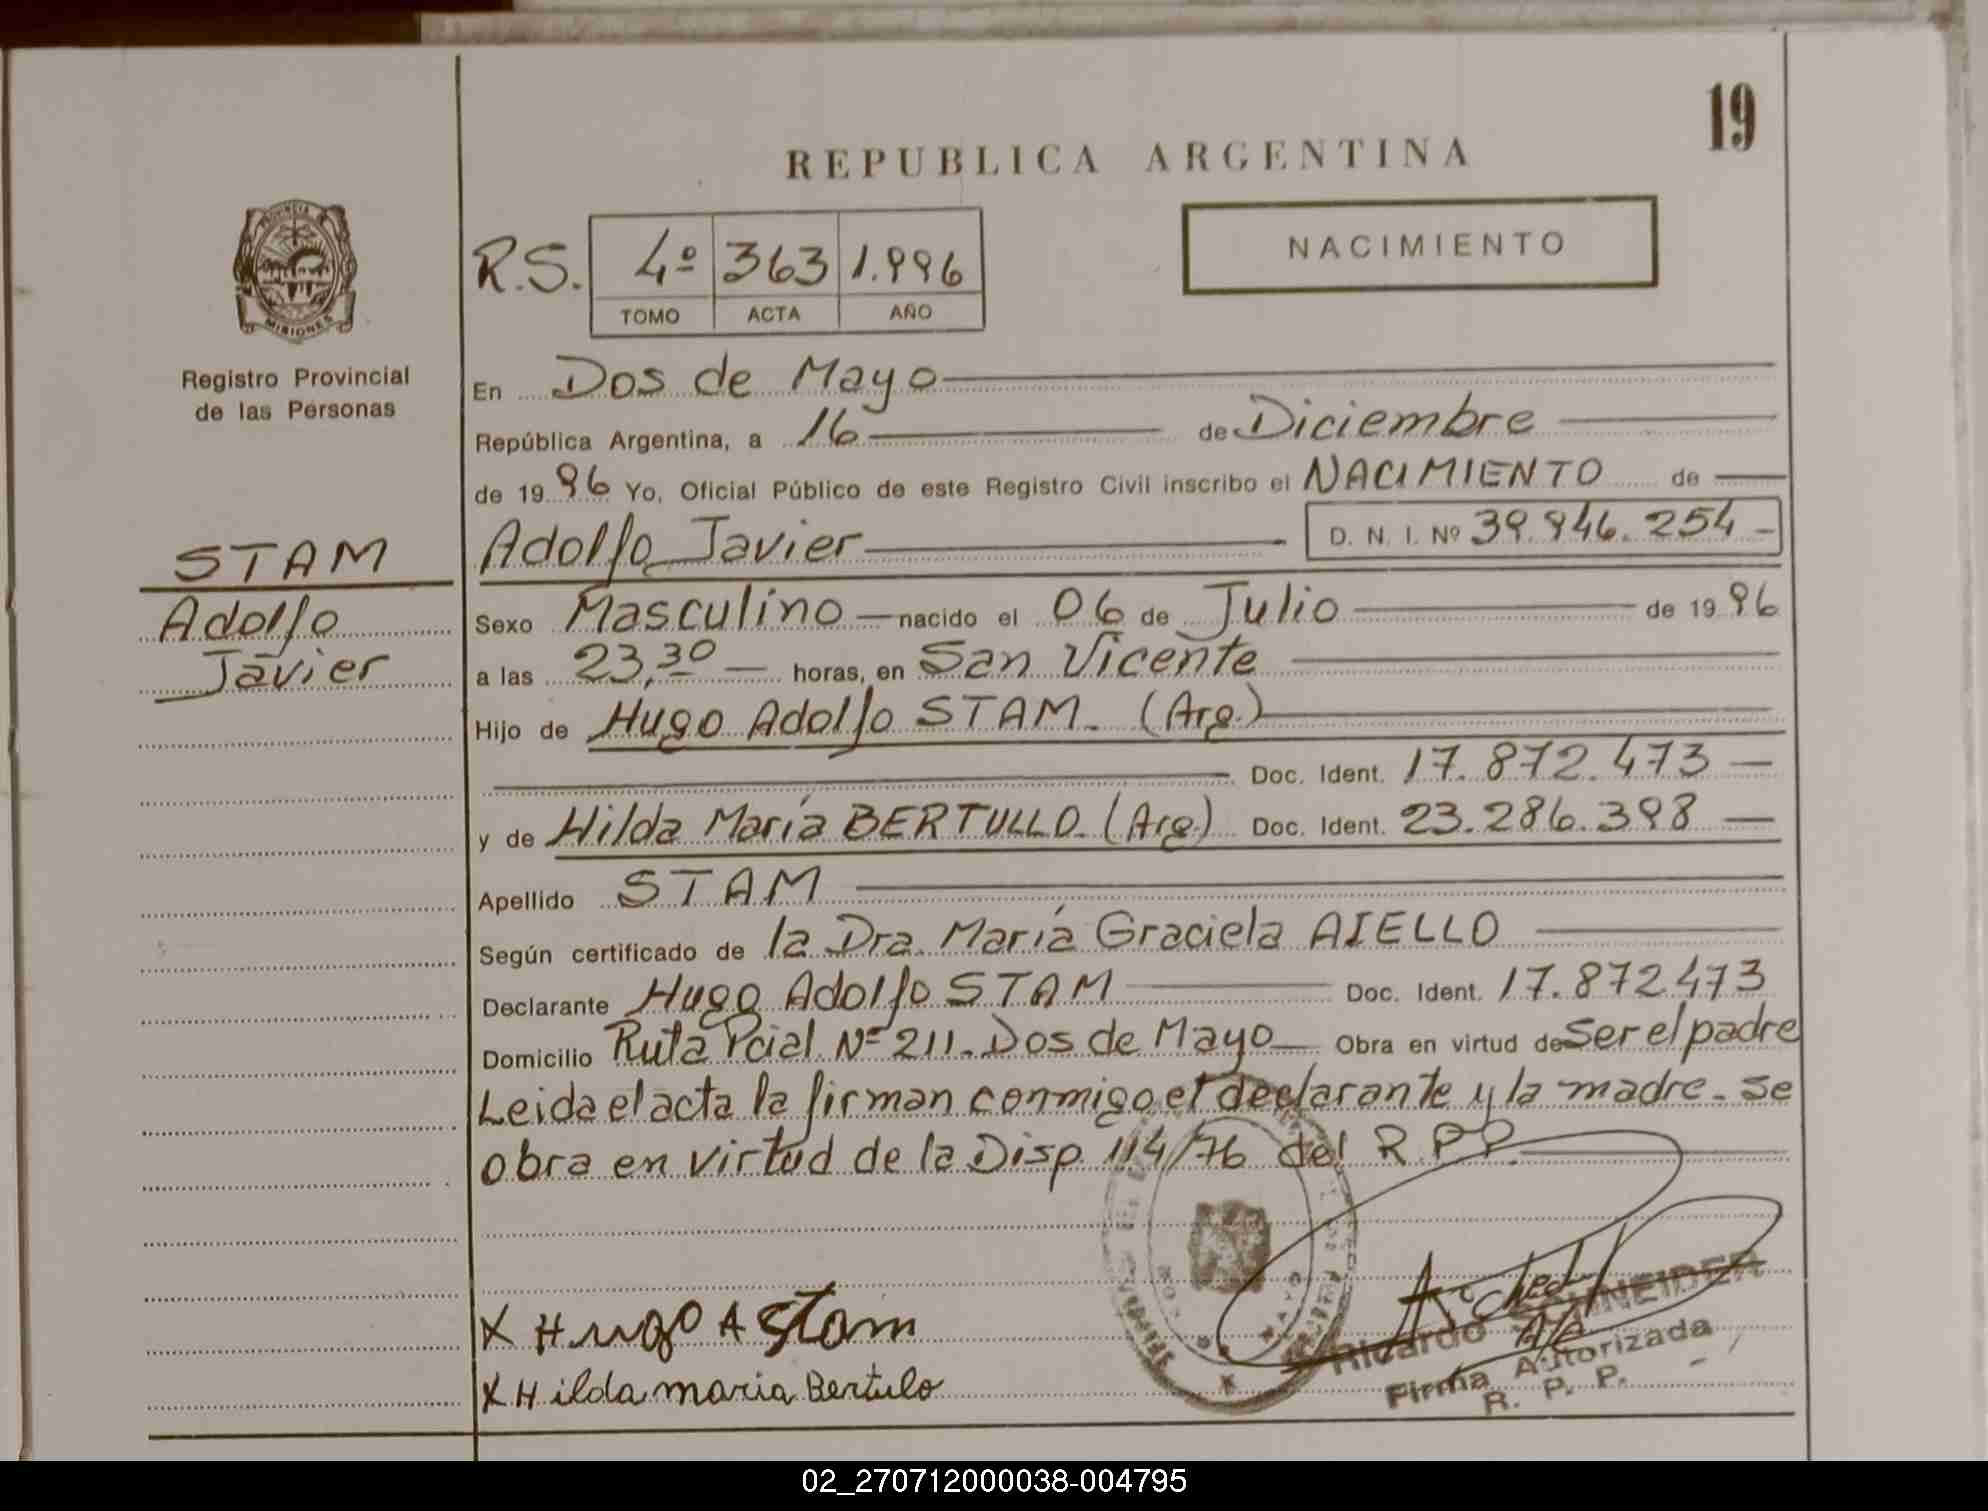 19
REPUBLICA ARGENTINA
PROVINCIA DE
MISIONES
Registro Provincial
de las Personas
R.S. 4º 363 1.996
TOMO ACTA AÑO
NACIMIENTO
En Dos de Mayo
República Argentina, a 16 de Diciembre
de 1996 Yo, Oficial Público de este Registro Civil inscribo el NACIMIENTO de
STAM
Adolfo
Javier
Adolfo Javier D. N. I. Nº 39.946.254-
Sexo Masculino nacido el 06 de Julio de 1996
a las 23,30 horas, en San Vicente
Hijo de Hugo Adolfo STAM. (Arg.)
Doc. Ident. 17.872.473
y de Hilda María BERTULLO. (Arg.) Doc. Ident. 23.286.398
Apellido STAM
Según certificado de la Dra. María Graciela AIELLO
Declarante Hugo Adolfo STAM Doc. Ident. 17.872.473
Domicilio Ruta Pcial. Nº 211. Dos de Mayo Obra en virtud de Ser el padre
Leida el acta la firman conmigo el declarante y la madre. Se
obra en virtud de la Disp. 114/76 del R.P.P.
X Hugo A Stam
X Hilda maria Bertulo
Ricardo SCHNEIDER
Firma Autorizada
R. P. P.
02_270712000038-004795